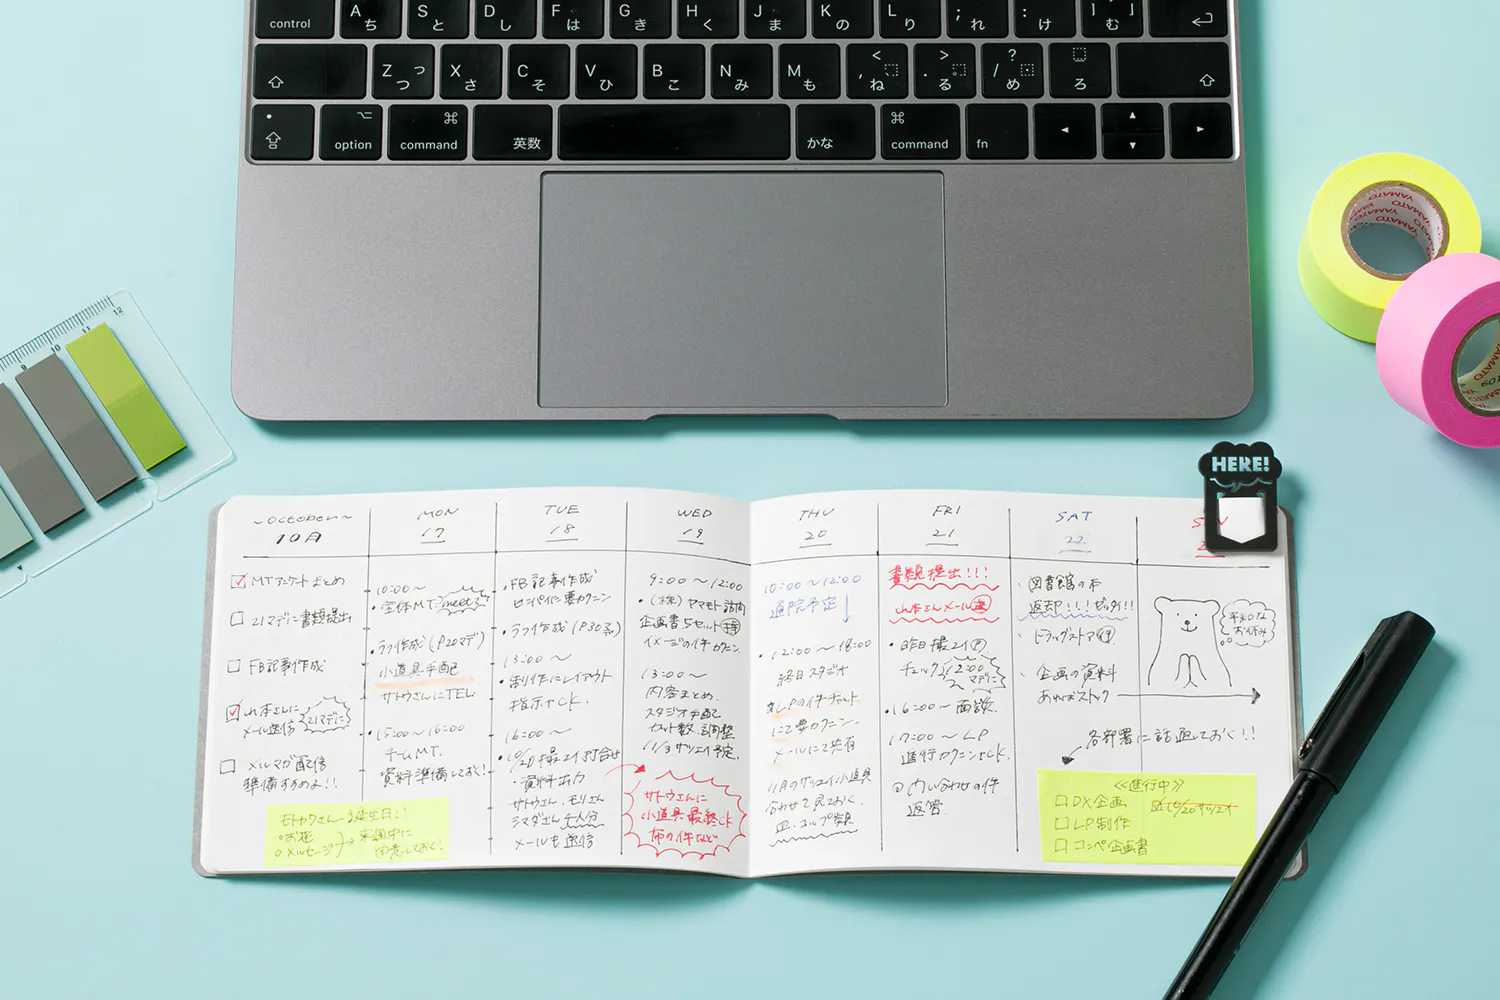 control
A ち
S と
D し
F は
G き
H く
J ま
K の
L り
; れ
: け
] む
Z つ っ
X さ
C そ
V ひ
B こ
N み
M も
< , ね
> . る
? / め
ろ
option
command
英数
かな
command
fn
9 10 11 12
YAMATO
YAMATO
HERE!
~OCTOBER~
10月
☑ MTアンケートまとめ
□ 21マデニ書類提出
□ FB記事作成
☑ 山本さんに
メール送信 21マデに
□ メルマガ配信
準備すすめよ!!
お誕生日!!
○お花
○メッセージ
来週中に
用意しておく!
MON
17
10:00〜
・全体MT. meet
・ラフ作成(P20マデ)
小道具手配
サトウさんにTEL
・15:00〜16:00
チームMT.
資料準備しておく!
TUE
18
・FB記事作成
センパイに要カクニン
・ラフ作成(P30 )
13:00〜
・制作にレイアウト
指示+ck.
16:00〜
・10/20撮入打合せ
・資料出力
サトウさん、モリさん
シマダさん 4人分
メールも送信
WED
19
9:00〜12:00
・(株)ヤマモト訪問
企画書5セット 持
イメージの件カクニン
13:00〜
内容まとめ.
スタジオ手配
カット数 調整
11/3 予定.
サトウさんに
小道具最終ck
布の件など
THU
20
10:00〜12:00
通院予定
・12:00〜18:00
終日スタジオ
LPの件チャット
にて要カクニン.
メールにて共有
11月の 小道具
合わせて見ておく.
皿・コップ
FRI
21
書類提出!!!
山本さんメール
・昨日撮入
チェック 12:00マデに
・16:00〜面談.
17:00〜LP
進行カクニンck.
問い合わせの件
返答
SAT
22
・図書館の本
返却!!!ゼッタイ!!
・ドラッグストア
・企画の資料
あればストック
各部署に話通しておく!!
<<進行中>>
□ DX企画
□ LP制作
□ コンペ企画書
SUN
平和な
お休み